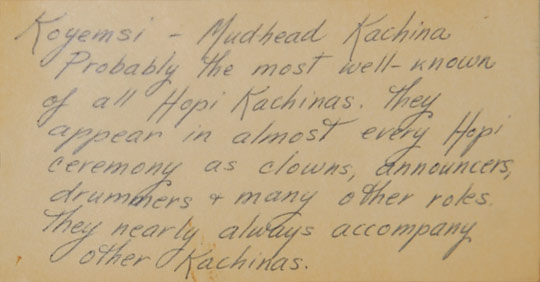 Koyemsi - Mudhead Kachina
Probably the most well-known
of all Hopi Kachinas. They
appear in almost every Hopi
ceremony as clowns, announcers,
drummers + many other roles.
They nearly always accompany
other Kachinas.